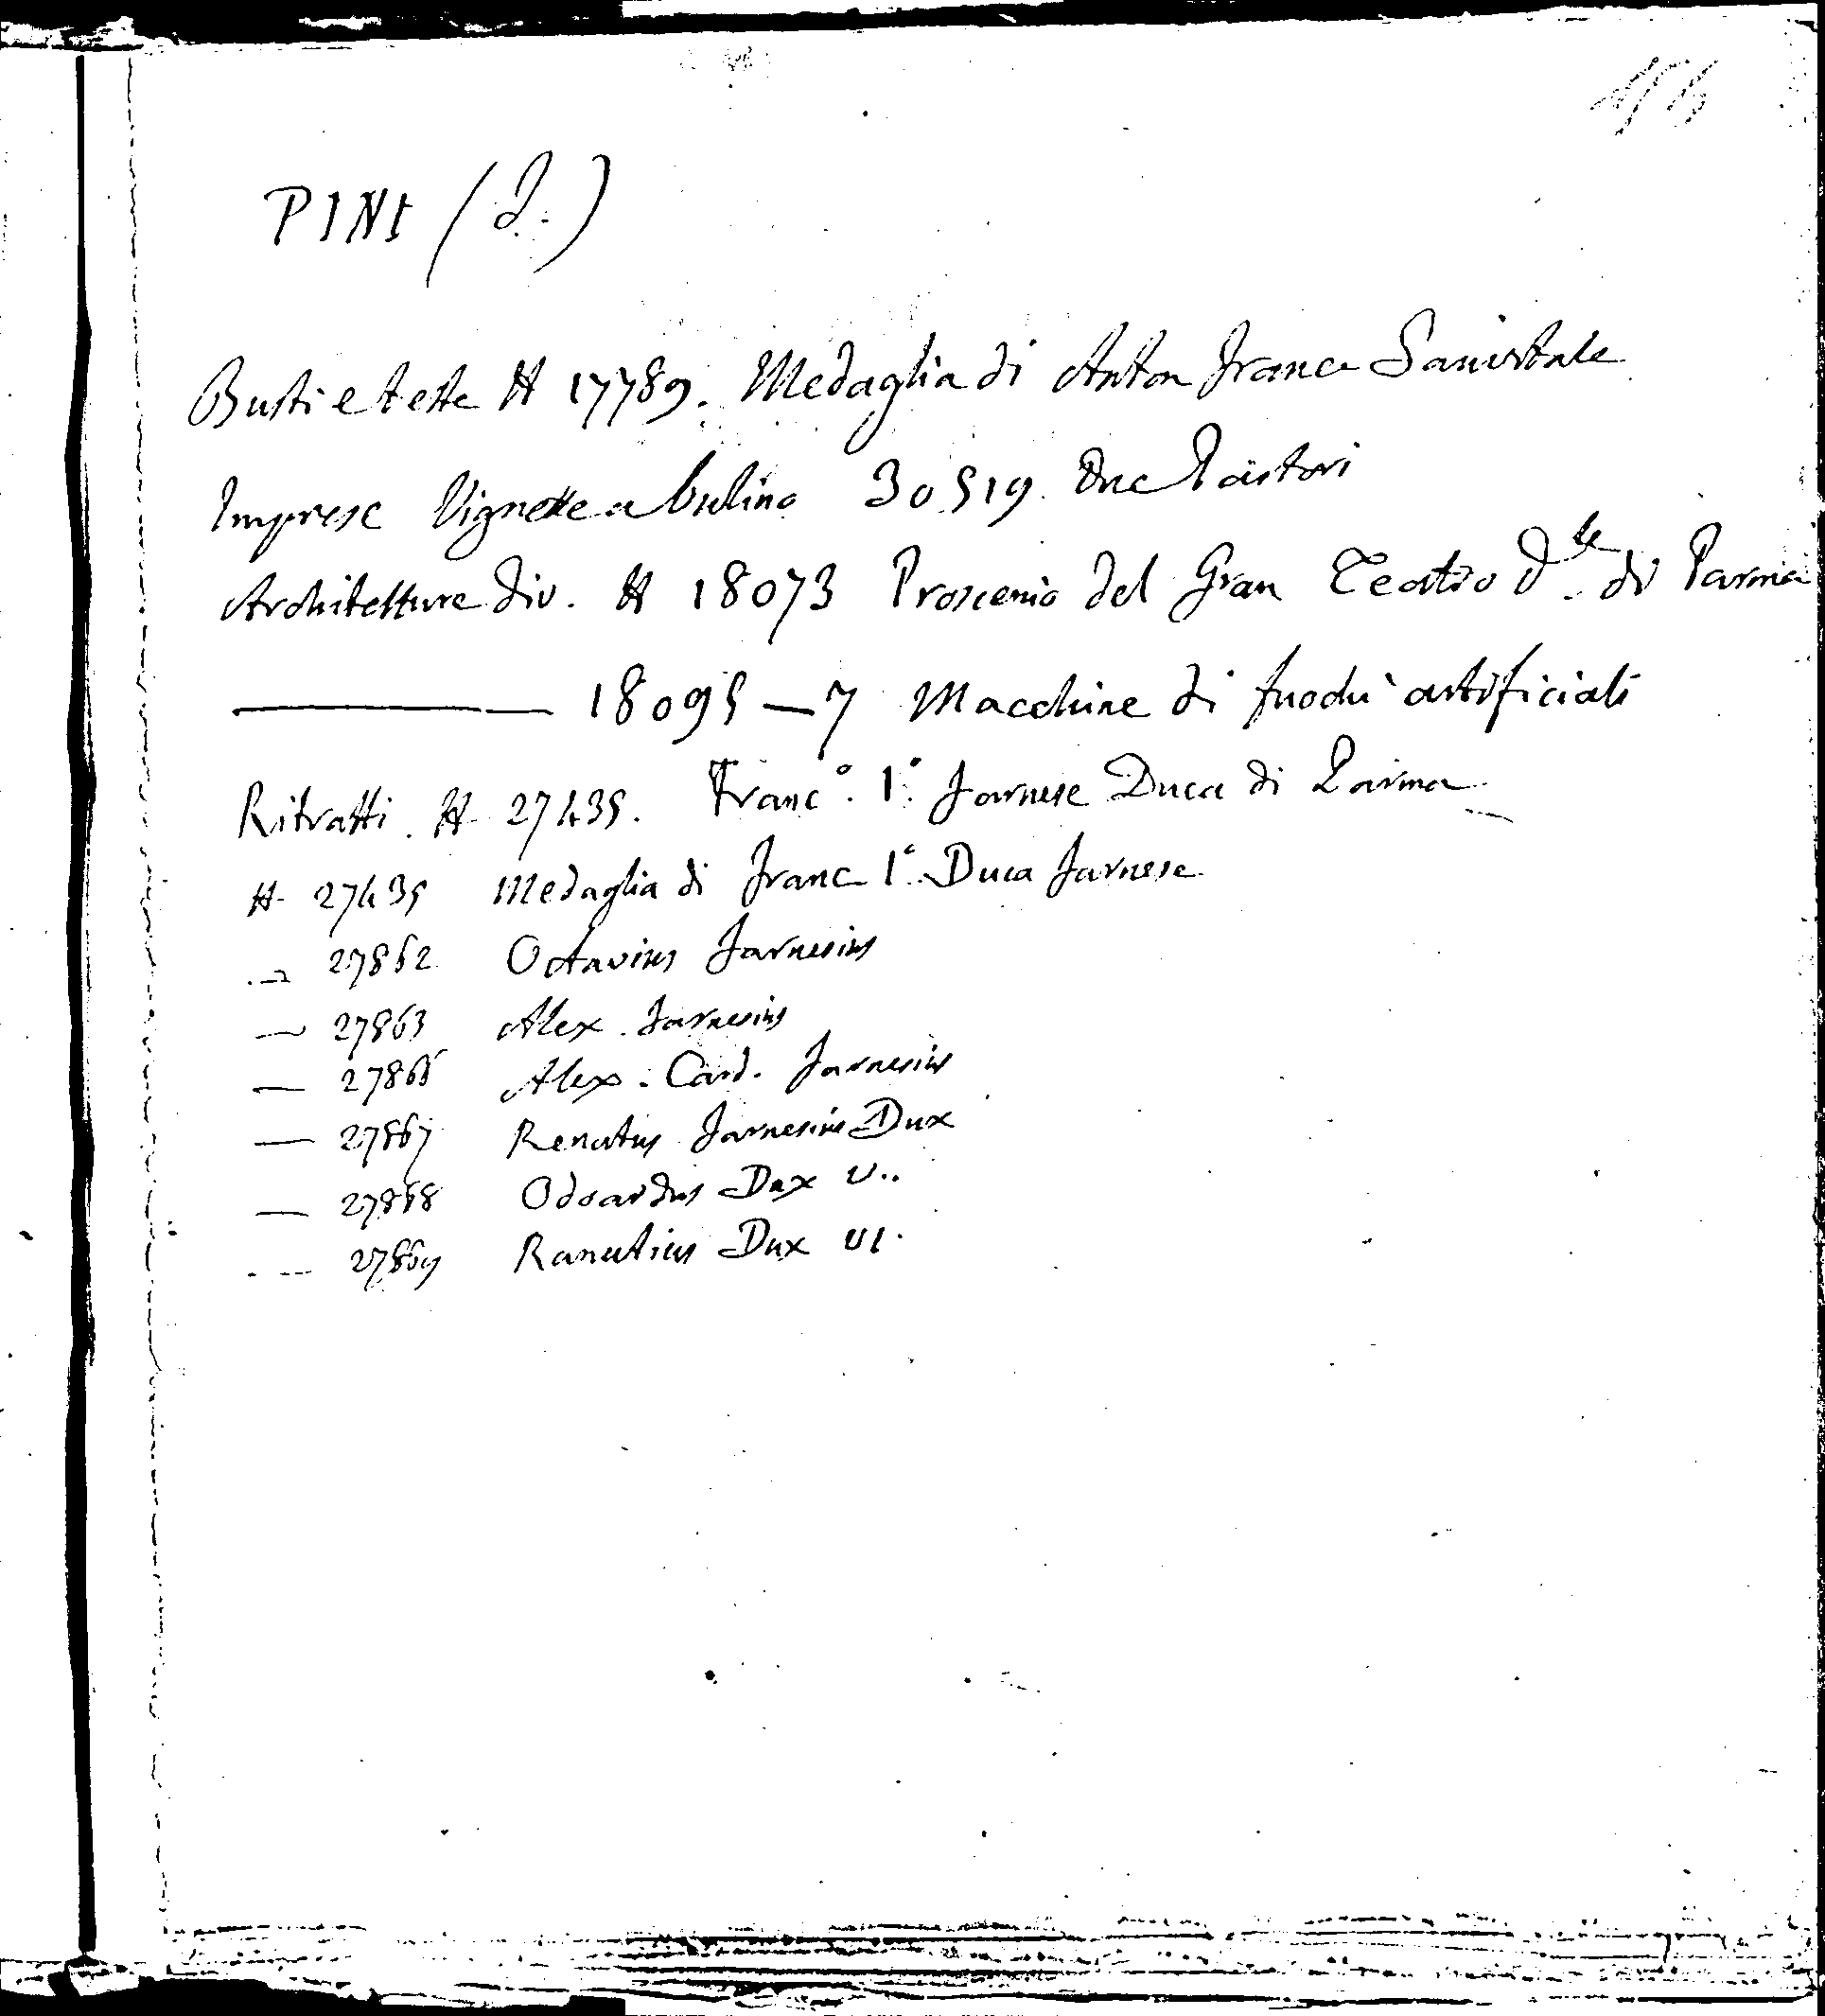 PINI (J.)
Busti e teste N 17789. Medaglia di Anton Franc Sanvitale
Imprese Vignette a bulino 30519. Due Pastori
Architetture div. N 18073 Proscenio del Gran Teatro Dle di Parma
——— 18095—7 Macchine di fuochi artificiali
Ritratti. N 27435. Franc°. I°. Farnese Duca di Parma
N 27435 Medaglia di Franc I°. Duca Farnese
— 27862 Octavius Farnesius
— 27863 Alex. Farnesius
— 27866 Alex. Card. Farnesius
— 27867 Renutus Farnesius Dux
— 27868 Odoardus Dux V..
— 27869 Ranutius Dux VI.